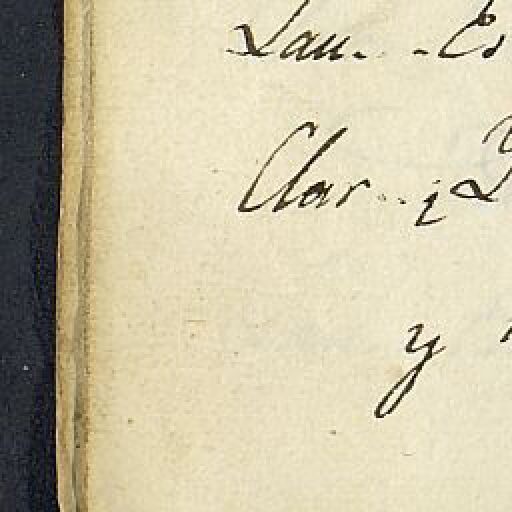 Lau. - Es
Clar - ¿
y